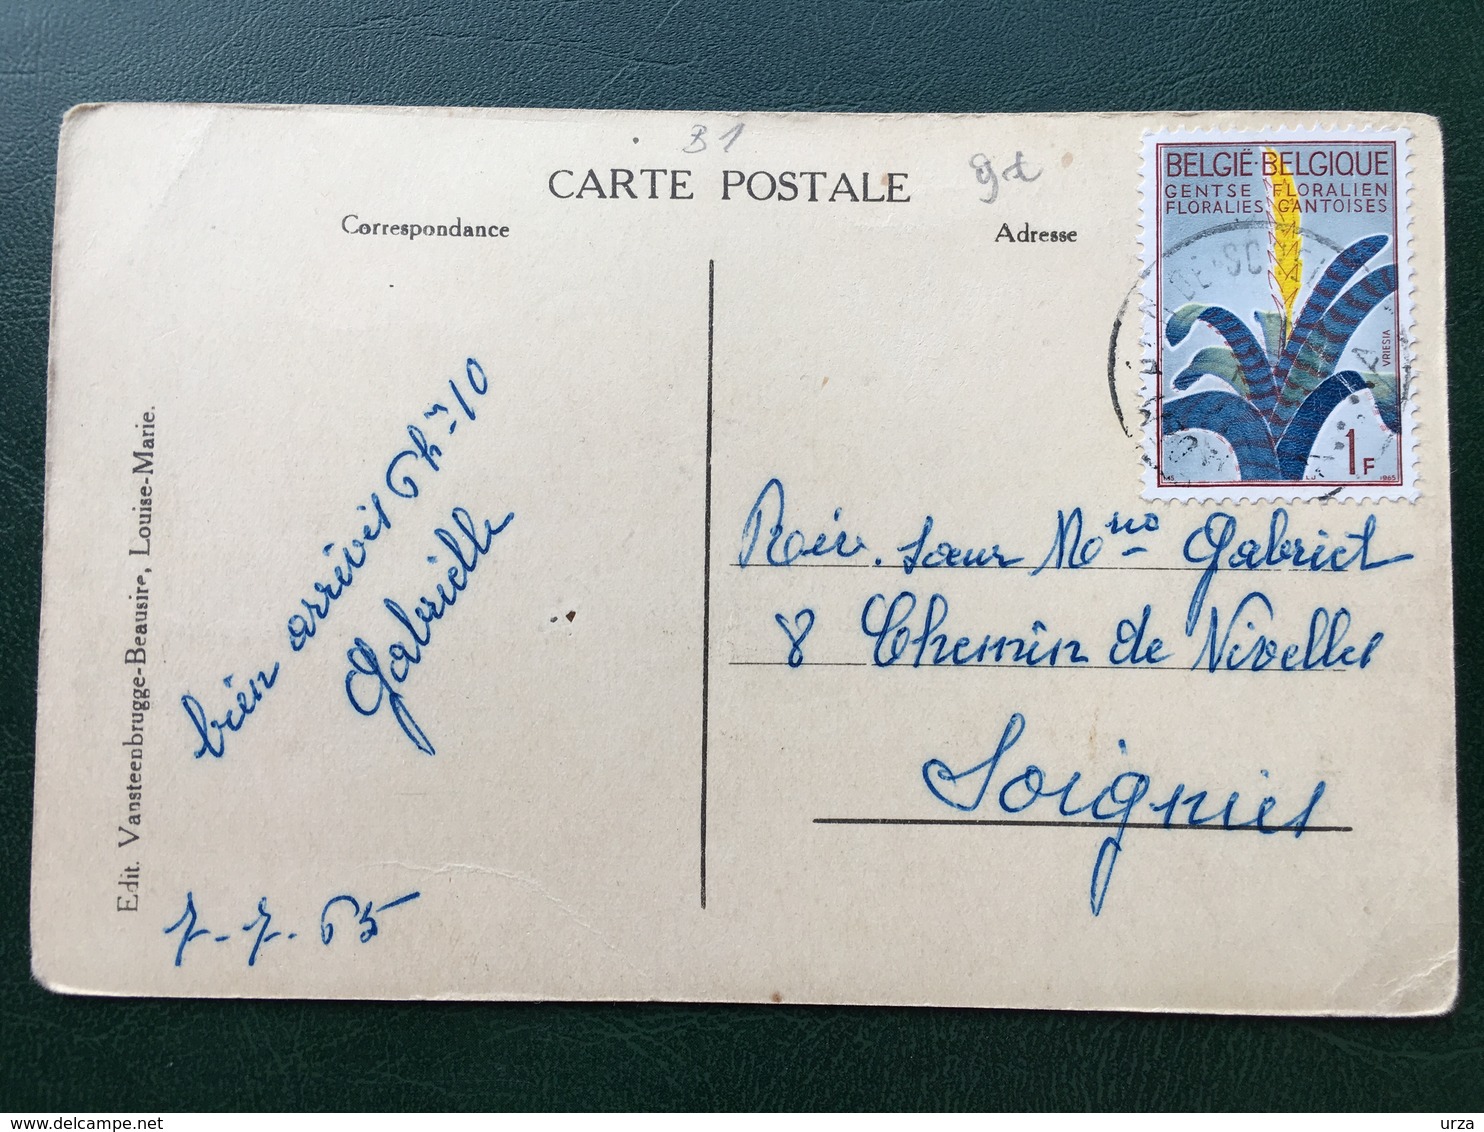 B1
CARTE POSTALE
Correspondance
Adresse
BELGIË·BELGIQUE
GENTSE FLORALIEN
FLORALIES GANTOISES
VRIESIA
1F
1965
bien arrivés 6h - 10
Gabrielle
7-7.65
Rév. Sœur M Gabriel
8 Chemin de Nivelles
Soignies
Edit. Vansteenbrugge-Beausire, Louise-Marie.
delcampe.net
urza